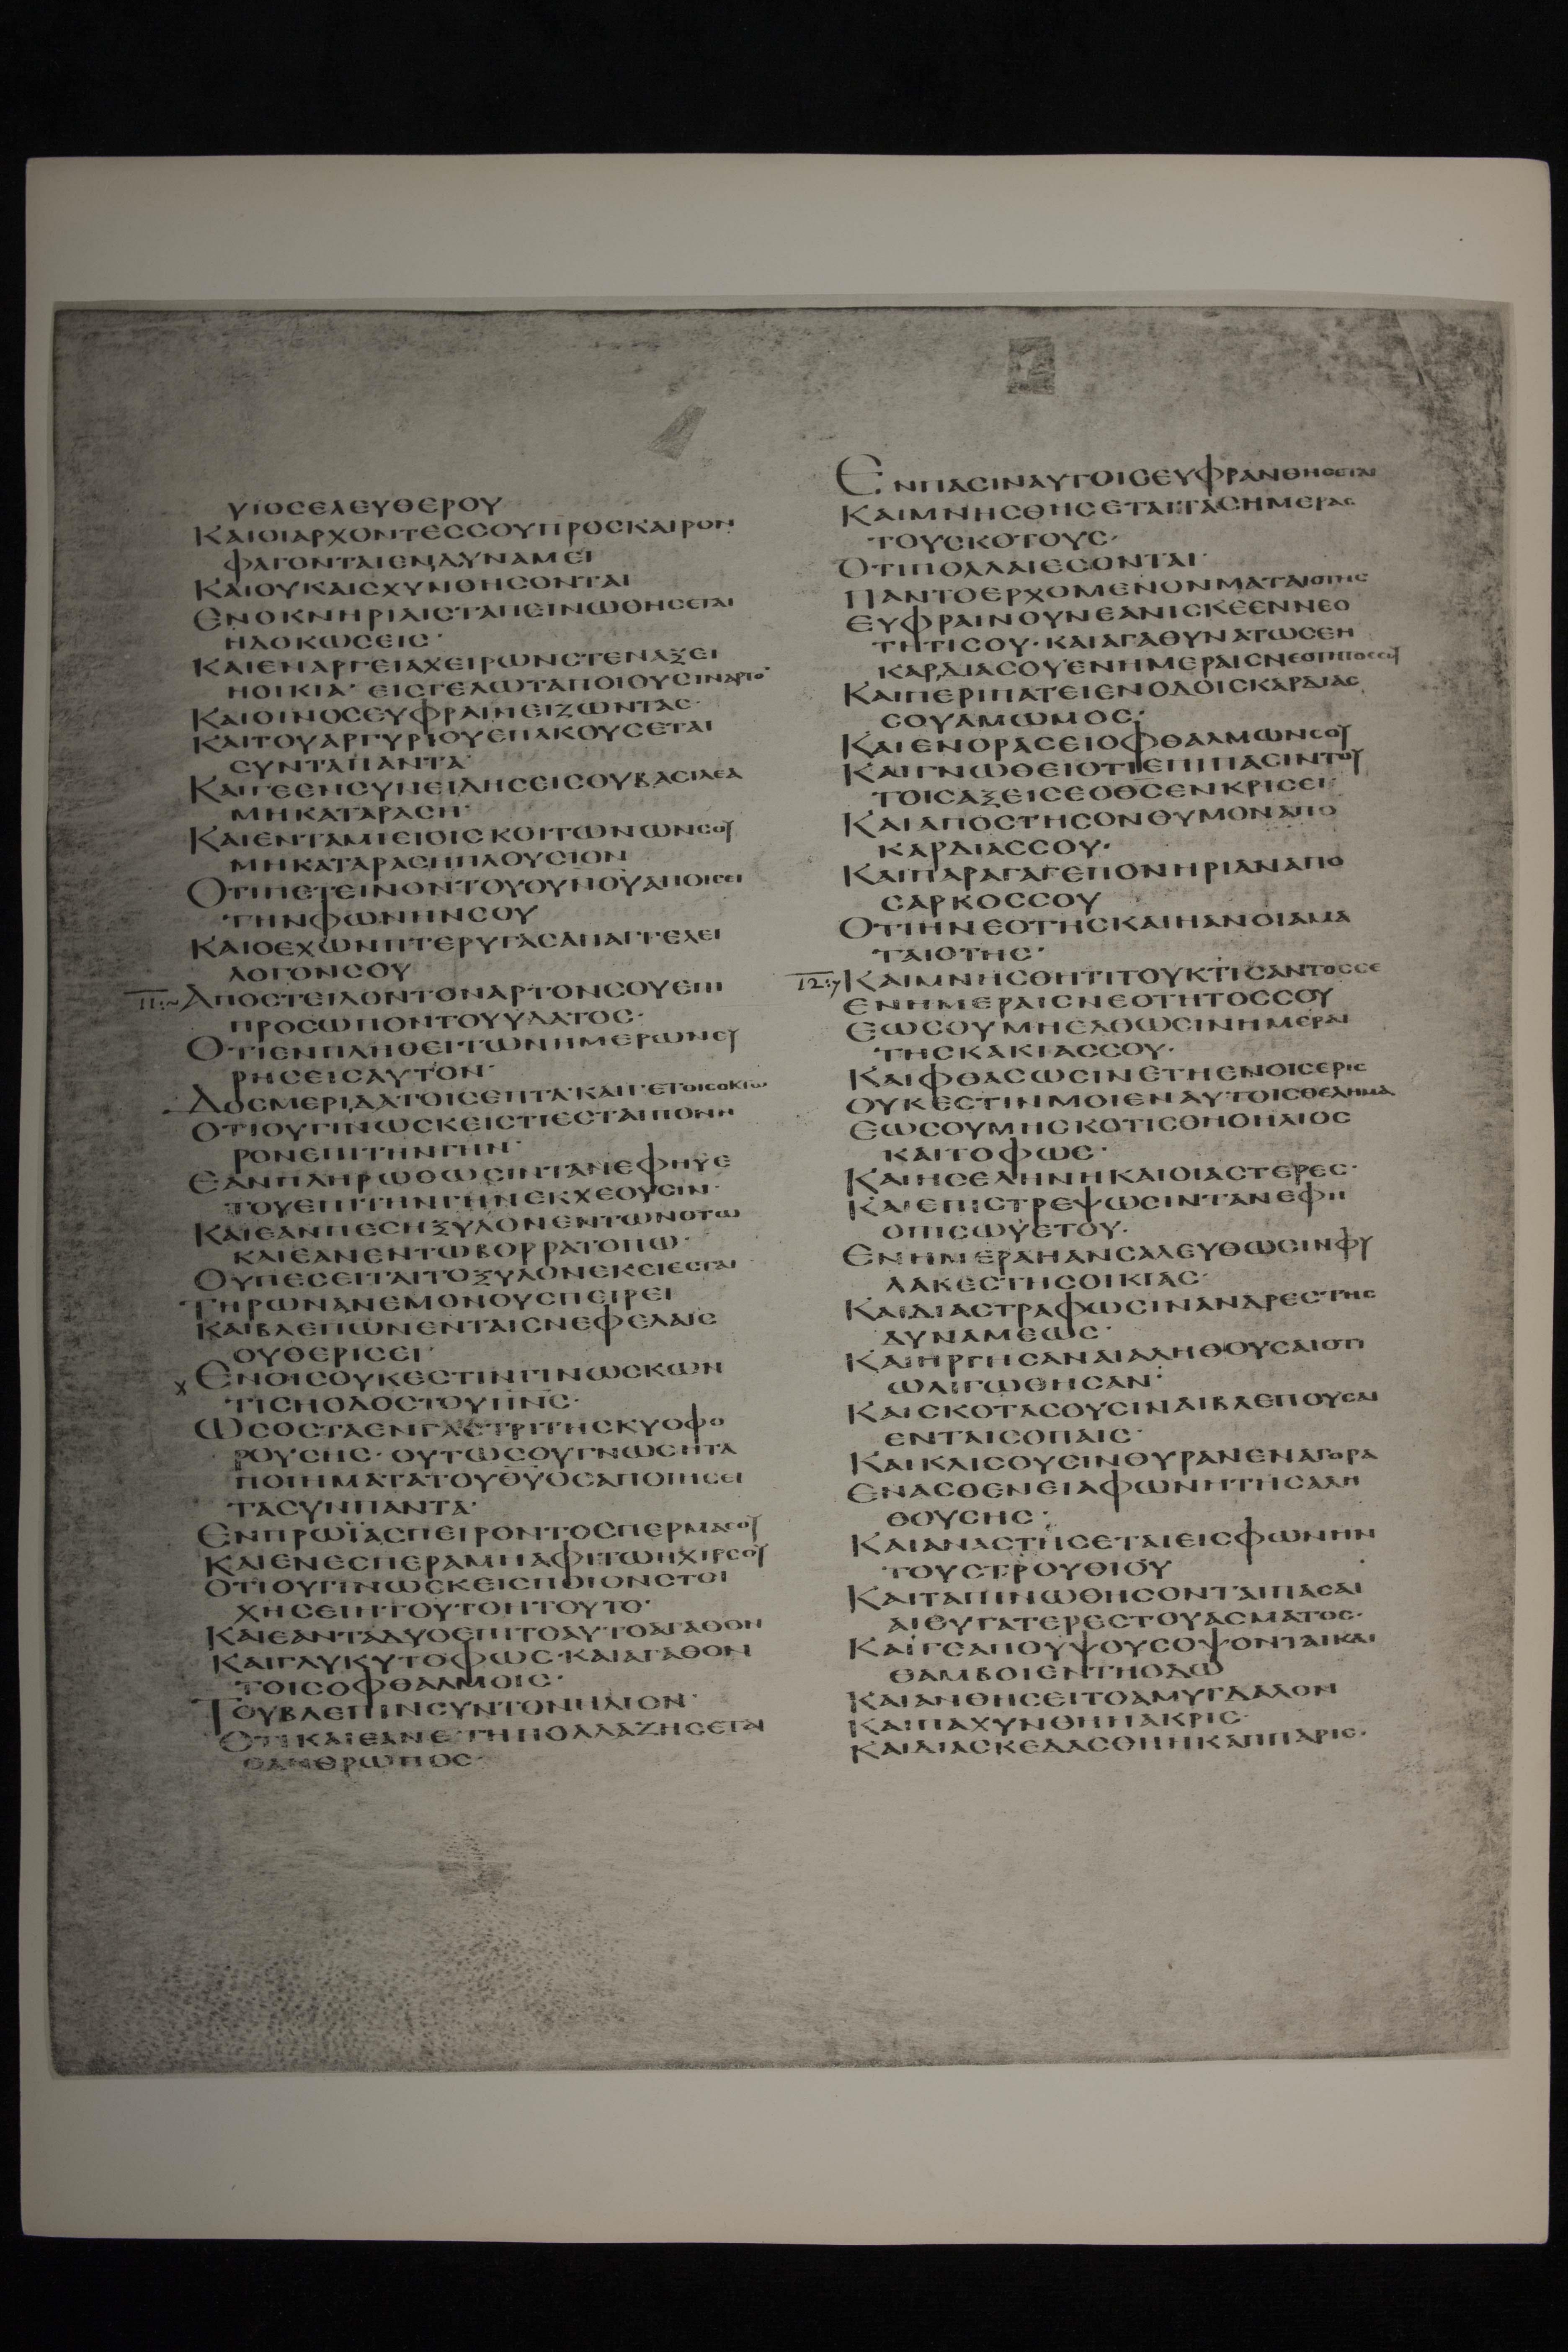 ΥΙΟCΕΛΕΥΘΕΡΟΥ
ΚΑΙΟΙΑΡΧΟΝΤΕCCΟΥΠΡΟCΚΑΙΡΟΝ
ΦΑΓΟΝΤΑΙΕΝΔΥΝΑΜΕΙ
ΚΑΙΟΥΚΑΙCΧΥΝΘΗCΟΝΤΑΙ
ΕΝΟΚΝΗΡΙΑΙCΤΑΠΕΙΝΩΘΗCΕΤΑΙ
ΗΔΟΚΩCΕΙC·
ΚΑΙΕΝΑΡΓΕΙΑΧΕΙΡΩΝCΤΕΝΑΞΕΙ
ΗΟΙΚΙΑ· ΕΙCΓΕΛΩΤΑΠΟΙΟΥCΙΝΑΡΤΟ̅
ΚΑΙΟΙΝΟCΕΥΦΡΑΙΝΕΙΖΩΝΤΑC·
ΚΑΙΤΟΥΑΡΓΥΡΙΟΥΕΠΑΚΟΥCΕΤΑΙ
CΥΝΤΑΠΑΝΤΑ·
ΚΑΙΓΕΕΝCΥΝΕΙΔΗCΕΙCΟΥΒΑCΙΛΕΑ
ΜΗΚΑΤΑΡΑCΗ·
ΚΑΙΕΝΤΑΜΙΕΙΟΙCΚΟΙΤΩΝΩΝCΟΥ
ΜΗΚΑΤΑΡΑCΗΠΛΟΥCΙΟΝ
ΟΤΙΠΕΤΕΙΝΟΝΤΟΥΟΥΝΟΥΑΠΟΙCΕΙ
ΤΗΝΦΩΝΗΝCΟΥ
ΚΑΙΟΕΧΩΝΠΤΕΡΥΓΑCΑΠΑΓΓΕΛΕΙ
ΛΟΓΟΝCΟΥ
11:~ ΑΠΟCΤΕΙΛΟΝΤΟΝΑΡΤΟΝCΟΥΕΠΙ
ΠΡΟCΩΠΟΝΤΟΥΥΔΑΤΟC·
ΟΤΙΕΝΠΛΗΘΕΙΤΩΝΗΜΕΡΩΝΕΥ
ΡΗCΕΙCΑΥΤΟΝ·
ΔΟCΜΕΡΙΔΑΤΟΙCΕΠΤΑ·ΚΑΙΓΕΤΟΙCΟΚΤΩ
ΟΤΙΟΥΓΙΝΩCΚΕΙCΤΙΕCΤΑΙΠΟΝΗ
ΡΟΝΕΠΙΤΗΝΓΗΝ·
ΕΑΝΠΛΗΡΩΘΩCΙΝΤΑΝΕΦΗΥΕ
ΤΟΥΕΠΙΤΗΝΓΗΝΕΚΧΕΟΥCΙΝ·
ΚΑΙΕΑΝΠΕCΗΞΥΛΟΝΕΝΤΩΝΟΤΩ
ΚΑΙΕΑΝΕΝΤΩΒΟΡΡΑΤΟΠΩ·
ΟΥΠΕCΕΙΤΑΙΤΟΞΥΛΟΝΕΚΕΙΕCΤΑΙ
ΤΗΡΩΝΑΝΕΜΟΝΟΥCΠΕΙΡΕΙ
ΚΑΙΒΛΕΠΩΝΕΝΤΑΙCΝΕΦΕΛΑΙC
ΟΥΘΕΡΙCΕΙ·
ΕΝΟΙCΟΥΚΕCΤΙΝΓΙΝΩCΚΩΝ
ΤΙCΗΟΔΟCΤΟΥΠΝC·
ΩCΟCΤΑΕΝΓΑCΤΡΙΤΗCΚΥΟΦΟ
ΡΟΥCΗC· ΟΥΤΩCΟΥΓΝΩCΗΤΑ
ΠΟΙΗΜΑΤΑΤΟΥΘΥΟCΑΠΟΙΗCΕΙ
ΤΑCΥΝΠΑΝΤΑ·
ΕΝΠΡΩΪΑCΠΕΙΡΟΝΤΟCΠΕΡΜΑCΟΥ
ΚΑΙΕΝΕCΠΕΡΑΜΗΑΦΙΤΩΗΧΙΡCΟΥ
ΟΤΙΟΥΓΙΝΩCΚΕΙCΠΟΙΟΝCΤΟΙ
ΧΗCΕΙΗΤΟΥΤΟΗΤΟΥΤΟ·
ΚΑΙΕΑΝΤΑΔΥΟΕΠΙΤΟΑΥΤΟΑΓΑΘΟΝ
ΚΑΙΓΛΥΚΥΤΟΦΩC·ΚΑΙΑΓΑΘΟΝ
ΤΟΙCΟΦΘΑΛΜΟΙC·
ΤΟΥΒΛΕΠΙΝCΥΝΤΟΝΗΛΙΟΝ·
ΟΤΙΚΑΙΕΑΝΕΤΗΠΟΛΛΑΖΗCΕΤΑΙ
ΟΑΝΘΡΩΠΟC·
ΕΝΠΑCΙΝΑΥΤΟΙCΕΥΦΡΑΝΘΗCΕΤΑΙ
ΚΑΙΜΝΗCΘΗCΕΤΑΙΤΑCΗΜΕΡΑC
ΤΟΥCΚΟΤΟΥC·
ΟΤΙΠΟΛΛΑΙΕCΟΝΤΑΙ·
ΠΑΝΤΟΕΡΧΟΜΕΝΟΝΜΑΤΑΙΟΤΗC
ΕΥΦΡΑΙΝΟΥΝΕΑΝΙCΚΕΕΝΝΕΟ
ΤΗΤΙCΟΥ· ΚΑΙΑΓΑΘΥΝΑΤΩCΕΗ
ΚΑΡΔΙΑCΟΥΕΝΗΜΕΡΑΙCΝΕΟΤΗΤΟCCΟΥ
ΚΑΙΠΕΡΙΠΑΤΕΙΕΝΟΔΟΙCΚΑΡΔΙΑC
CΟΥΑΜΩΜΟC·
ΚΑΙΕΝΟΡΑCΕΙΟΦΘΑΛΜΩΝCΟΥ
ΚΑΙΓΝΩΘΕΙΟΤΙΕΠΙΠΑCΙΝΤΟΥ
ΤΟΙCΑΞΕΙCΕΟΘCΕΝΚΡΙCΕΙ·
ΚΑΙΑΠΟCΤΗCΟΝΘΥΜΟΝΑΠΟ
ΚΑΡΔΙΑCCΟΥ·
ΚΑΙΠΑΡΑΓΑΓΕΠΟΝΗΡΙΑΝΑΠΟ
CΑΡΚΟCCΟΥ
ΟΤΙΗΝΕΟΤΗCΚΑΙΗΑΝΟΙΑΜΑ
ΤΑΙΟΤΗC·
12:7 ΚΑΙΜΝΗCΘΗΤΙΤΟΥΚΤΙCΑΝΤΟCCΕ
ΕΝΗΜΕΡΑΙCΝΕΟΤΗΤΟCCΟΥ
ΕΩCΟΥΜΗΕΛΘΩCΙΝΗΜΕΡΑΙ
ΤΗCΚΑΚΙΑCCΟΥ·
ΚΑΙΦΘΑCΩCΙΝΕΤΗΕΝΟΙCΕΡΙC
ΟΥΚΕCΤΙΝΜΟΙΕΝΑΥΤΟΙCΘΕΛΗΜΑ
ΕΩCΟΥΜΗCΚΟΤΙCΘΗΟΗΛΙΟC
ΚΑΙΤΟΦΩC·
ΚΑΙΗCΕΛΗΝΗΚΑΙΟΙΑCΤΕΡΕC·
ΚΑΙΕΠΙCΤΡΕΨΩCΙΝΤΑΝΕΦΗ
ΟΠΙCΩΥΕΤΟΥ·
ΕΝΗΜΕΡΑΗΑΝCΑΛΕΥΘΩCΙΝΦΥ
ΛΑΚΕCΤΗCΟΙΚΙΑC·
ΚΑΙΔΙΑCΤΡΑΦΩCΙΝΑΝΔΡΕCΤΗC
ΔΥΝΑΜΕΩC·
ΚΑΙΗΡΓΗCΑΝΑΙΑΛΗΘΟΥCΑΙΟΤΙ
ΩΛΙΓΩΘΗCΑΝ·
ΚΑΙCΚΟΤΑCΟΥCΙΝΑΙΒΛΕΠΟΥCΑΙ
ΕΝΤΑΙCΟΠΑΙC·
ΚΑΙΚΛΙCΟΥCΙΝΘΥΡΑΝΕΝΑΓΟΡΑ
ΕΝΑCΘΕΝΕΙΑΦΩΝΗΤΗCΑΛΗ
ΘΟΥCΗC·
ΚΑΙΑΝΑCΤΗCΕΤΑΙΕΙCΦΩΝΗΝ
ΤΟΥCΤΡΟΥΘΙΟΥ
ΚΑΙΤΑΠΙΝΩΘΗCΟΝΤΑΙΠΑCΑΙ
ΑΙΘΥΓΑΤΕΡΕCΤΟΥΑCΜΑΤΟC·
ΚΑΙΓΕΑΠΟΥΨΟΥCΟΨΟΝΤΑΙΚΑΙ
ΘΑΜΒΟΙΕΝΤΗΟΔΩ
ΚΑΙΑΝΘΗCΕΙΤΟΑΜΥΓΔΑΛΟΝ
ΚΑΙΠΑΧΥΝΘΗΗΑΚΡΙC·
ΚΑΙΔΙΑCΚΕΔΑCΘΗΗΚΑΠΠΑΡΙC·